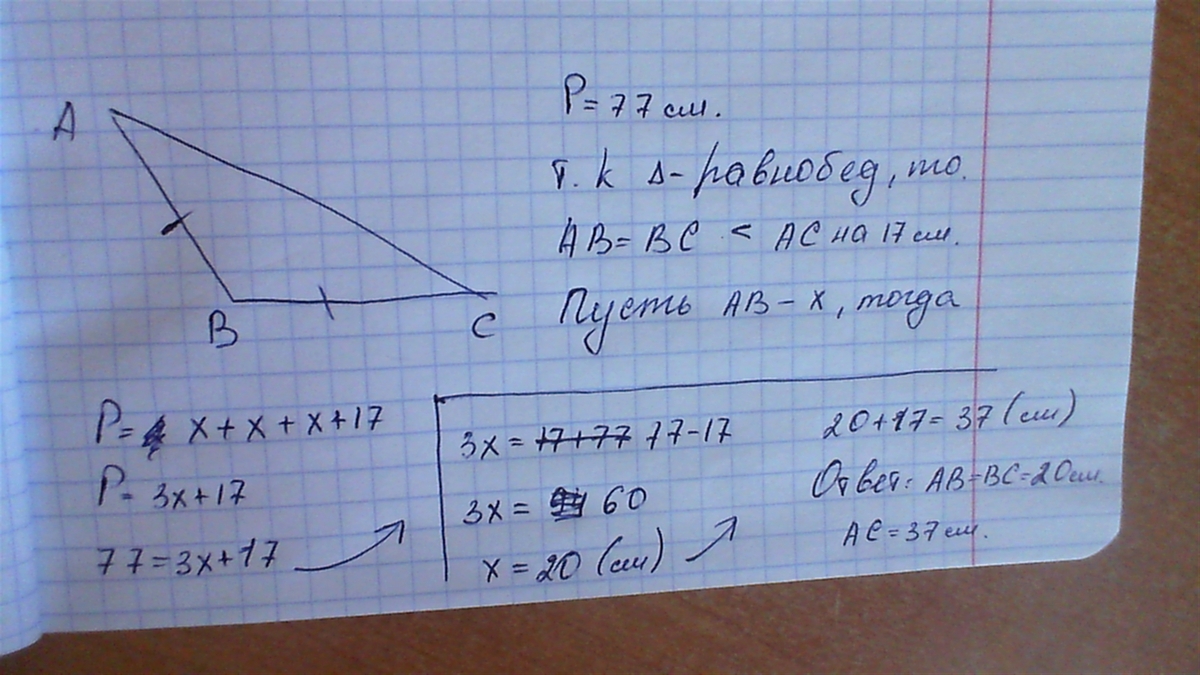 A
B
C
P=77см.
т.к Δ-равнобед, то.
AB=BC < AC на 17см.
Пусть AB-x, тогда
P= x+x+x+17
P= 3x+17
77=3x+17
3x= 17+77 77-17
3x= 60
x=20 (см)
20+17=37 (см)
Ответ: AB=BC=20см.
AC=37см.